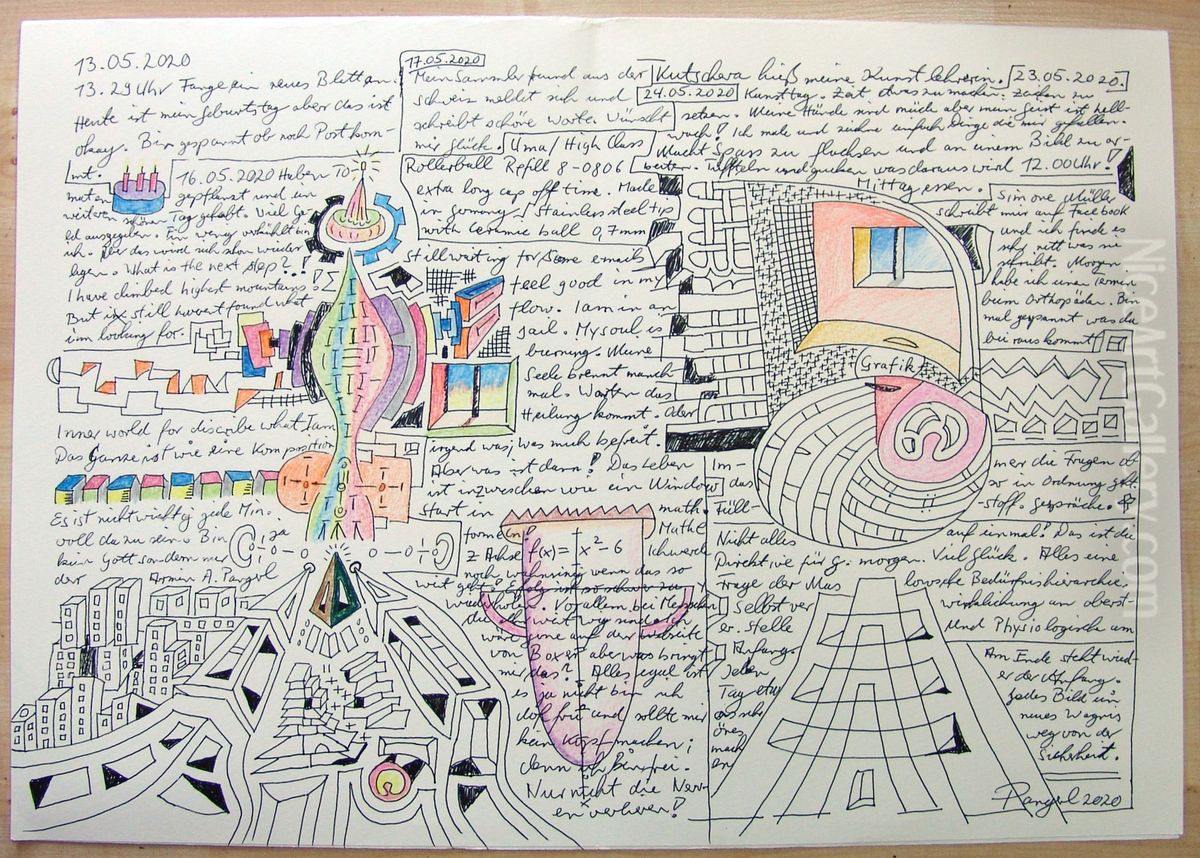 13.05.2020
13.29 Uhr Fange ein neues Blatt an.
Heute ist mein Geburtstag aber das ist
okay. Bin gespannt ob noch Post kom-
mt.
16.05.2020 Haben To-
maten gepflanzt und ein
weiteren schön Tag gehabt. Viel Ge-
ld ausgegeben. Ein wenig erkältet bin
ich. Aber das wird sich schon wieder
legen. What is the next step??!
I have climbed highest mountains!
But still havent found what
im looking for.
Inner world for discribe what I am
Das Ganze ist wie eine Komposition
Es ist nicht wichtig jede Min.
voll da zu sein. Bin ja
kein Gott sondern nur
der Armin A. Pangerl
17.05.2020
Mein Sammlerfreund aus der
Schweiz meldet sich und
schreibt schöne Worte. Wünscht
mir Glück.
Uma / High Class
Rollerball Refill 8-0806
extra long cap off time. Made
in Germany / Stainless steel tip
with Ceramic ball 0,7mm
Still waiting for some emails
feel good in my
flow. I am in an
jail. My soul is
burning. Meine
Seele brennt manch
mal. Warten das
Heilung kommt. Oder
irgend was, was mich befreit.
Aber was ist dann! Das Leben
ist inzwischen wie ein Window
Start in math.
formeln! Mathe
f(x)= x²-6
Z Achse Ich werd
noch wahnsinnig wenn das so
weit geht. Erfolg ist so schwer zu
wiederholen. Vor allem bei Menschen
die weit weg sind. Ich
wäre gerne auf der Website
von Boxer aber was bringt
mir das? Alles egal ist
es ja nicht bin ich
doch frei und sollte mir
kein Kopf machen;
denn ich bin frei.
Nur nicht die Nerv-
en verlieren!
Kutschera hieß meine Kunstlehrerin.
23.05.2020.
24.05.2020 Kunsttag. Zeit etwas zu machen. Zeichen zu
setzen. Meine Hände sind müde aber mein Geist ist hell-
wach! Ich male und zeichne einfach Dinge die mir gefallen.
Macht Spass zu fluchsen und an einem Bild zu ar-
beiten. Tüffteln und gucken was daraus wird 12.00 Uhr!
Mittagessen.
Simone Müller
schreibt mir auf Facebook
und ich finde es
sehr nett was sie
schreibt. Morgen
habe ich einen Termin
beim Orthopäden. Bin
mal gespannt was da
bei rauskommt!
Grafik
Im-
mer die Fragen ob
das so in Ordnung geht
Füll-
stoff. Gespräche.
Nicht alles auf einmal! Das ist die
Direktive für G. morgen. Viel Glück. Alles eine
Frage der Mas lowsche Bedürfnishierarchie.
Selbst ver wirklichung am oberst-
er. Stelle Und Physiologische am
Anfang.
Jeden
Tag etw
as sch
önes
mach
en
Am Ende steht wied-
er der Anfang.
Jedes Bild ein
neues Wagnis
weg von der
Sicherheit.
Pangerl 2020
NiceArtGallery.com